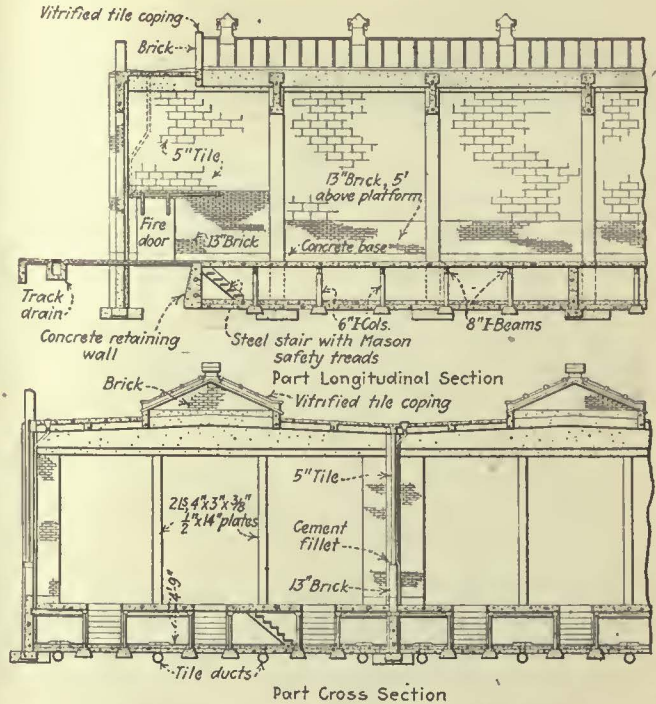 Vitrified tile coping
Brick
5" Tile
13" Brick, 5'
above platform
Fire
door
13" Brick
Concrete base
Track
drain
Concrete retaining
wall
6" I-Cols.
8" I-Beams
Steel stair with Mason
safety treads
Part Longitudinal Section
Brick
Vitrified tile coping
5" Tile
2 Ls, 4"x3"x3/8"
1/2"x14" plates
Cement
fillet
4'-9"
13" Brick
Tile ducts
Part Cross Section